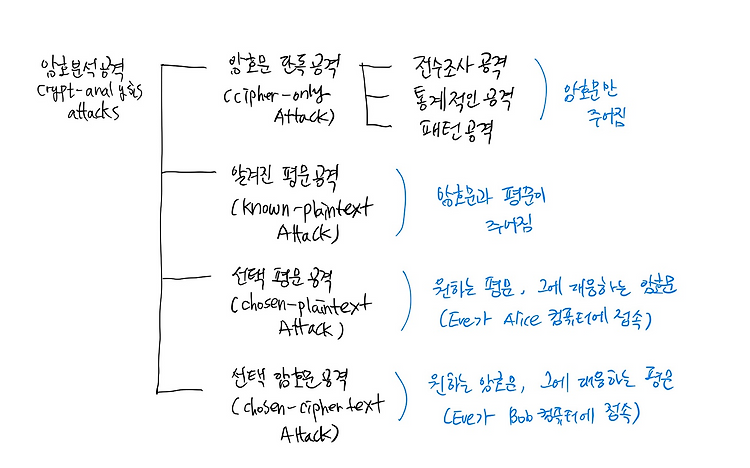 암호분석공격
crypt-analysis
attacks
암호문 단독공격
(cipher-only
Attack)
전수조사 공격
통계적인 공격
패턴공격
암호문만
주어짐
알려진 평문공격
(known-plaintext
Attack)
암호문과 평문이
주어짐
선택 평문 공격
(chosen-plaintext
Attack)
원하는 평문, 그에 대응하는 암호문
(Eve가 Alice 컴퓨터에 접속)
선택 암호문 공격
(chosen-ciphertext
Attack)
원하는 암호문, 그에 대응하는 평문
(Eve가 Bob 컴퓨터에 접속)